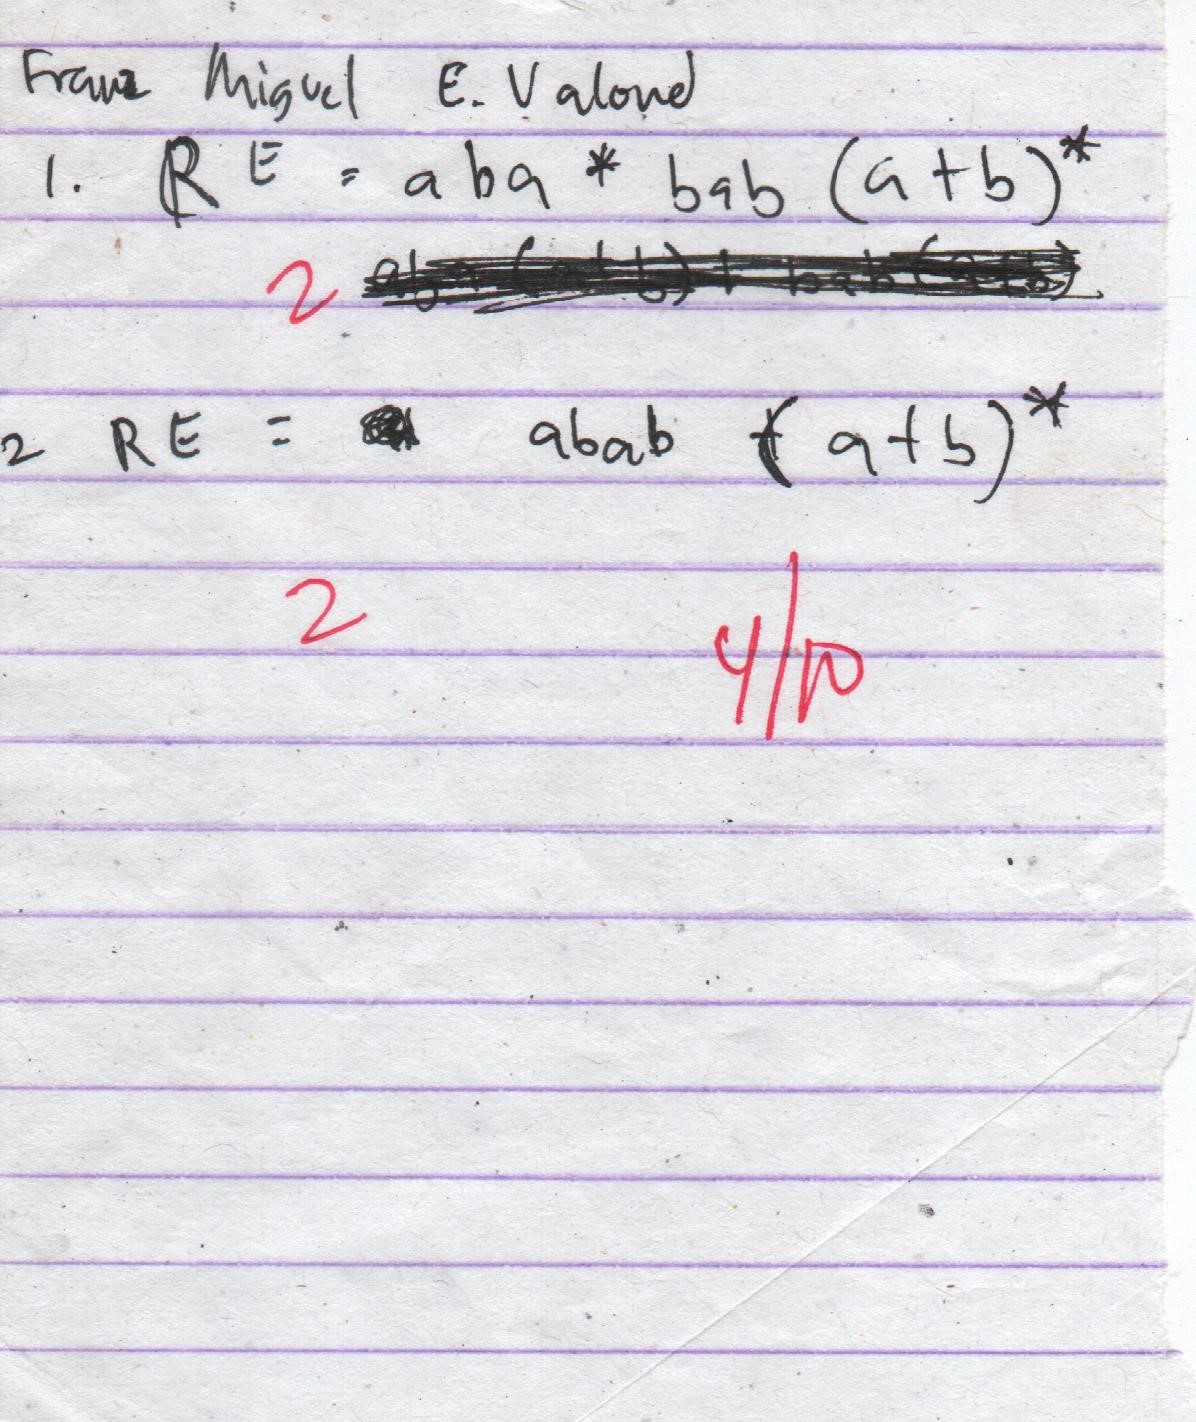 Franz Miguel E. Valond
1. RE = aba * bab (a+b)*
2
2 RE = abab (a+b)*
2
4/10